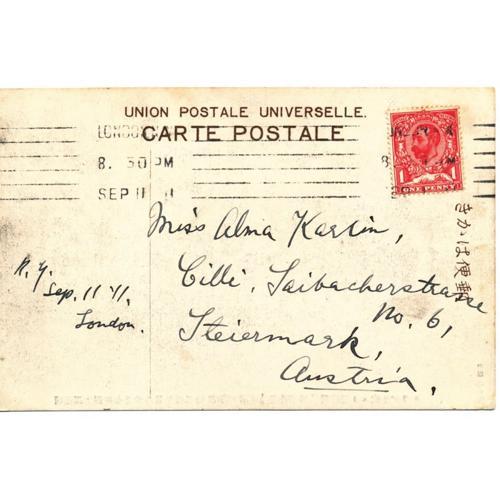 UNION POSTALE UNIVERSELLE.
CARTE POSTALE
LONDON
8. 30 PM
SEP 11 11
1
ONE PENNY
きかは便郵
Miss Alma Karlin,
Cilli, Laibacherstrasse
No. 6,
Steiermark,
Austria.
Sep. 11 '11,
London.